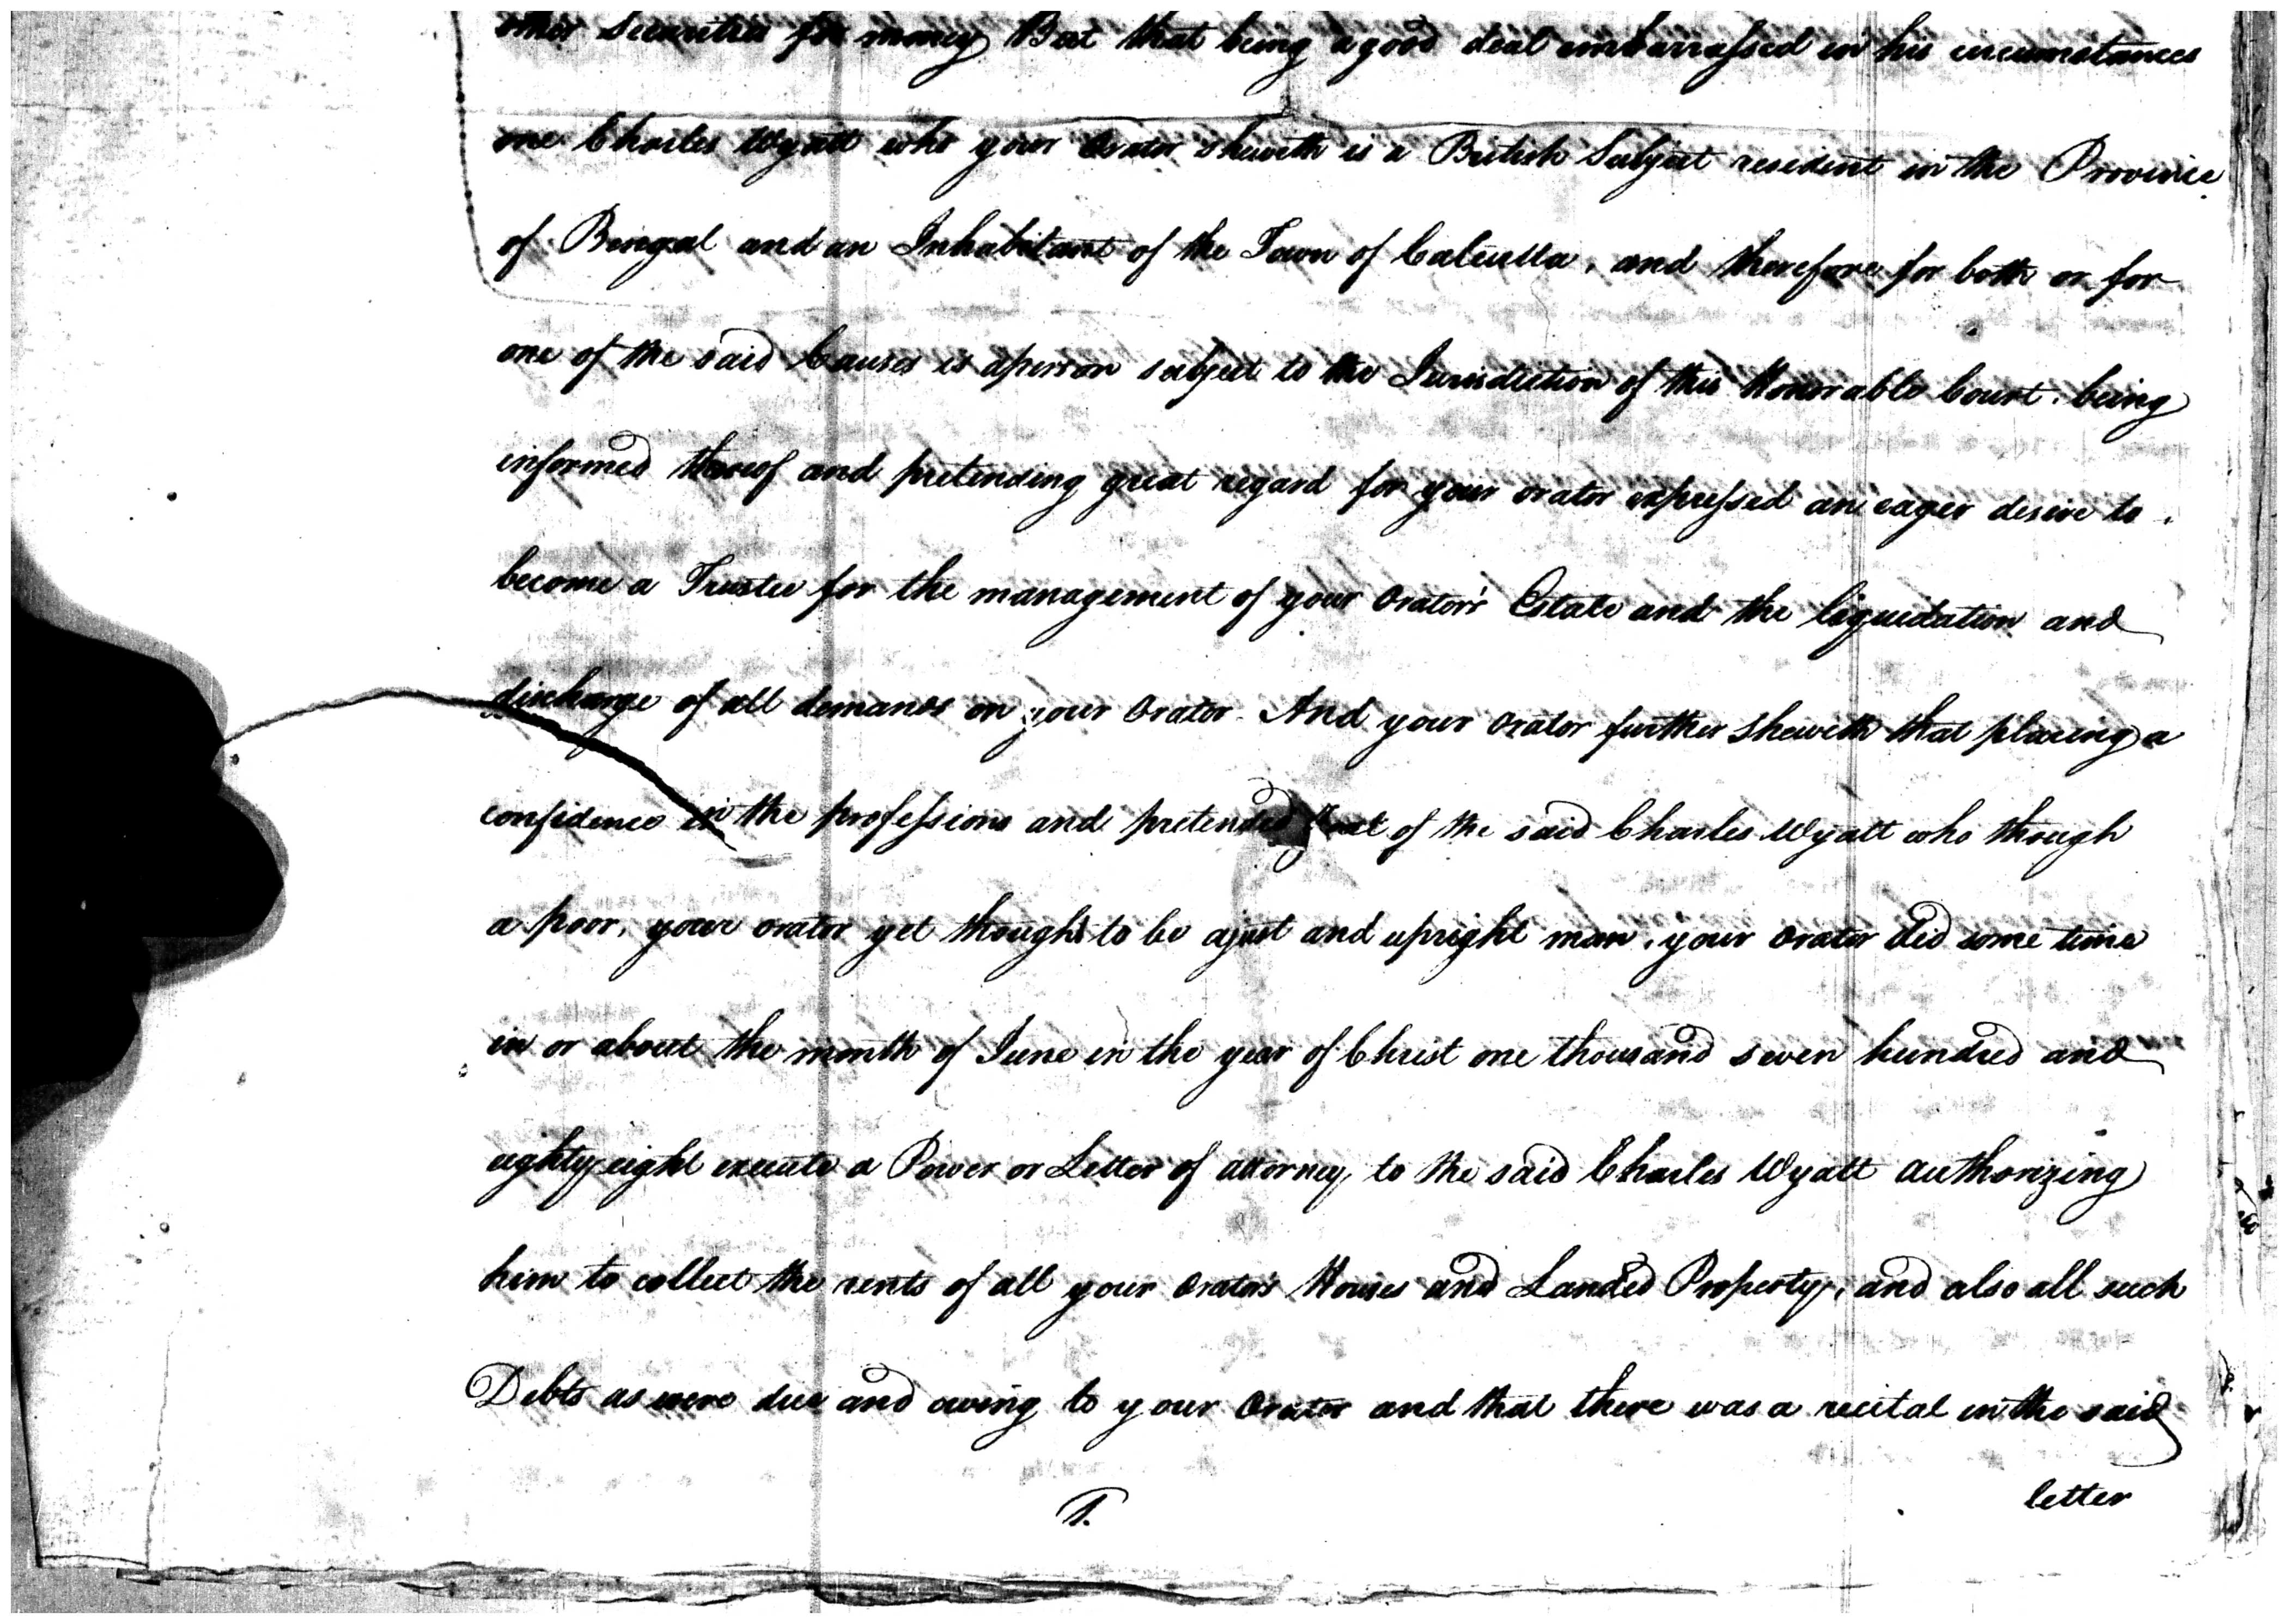 other Securities for money But that being a good deal embarrassed in his circumstances
one Charles Wyatt who your Orator sheweth is a British Subject resident in the Province
of Bengal and an Inhabitant of the Town of Calcutta, and therefore for both or for
one of the said Causes is a person subject to the Jurisdiction of this Honorable Court. being
informed thereof and pretending great regard for your orator expressed an eager desire to
become a Trustee for the management of your Orator's Estate and the liquidation and
discharge of all demands on your Orator. And your Orator further Sheweth that placing a
confidence in the professions and pretended of the said Charles Wyatt who though
a poor, your orator yet thought to be a just and upright man, your Orator did some time
in or about the month of June in the year of Christ one thousand seven hundred and
eighty eight execute a Power or Letter of attorney to the said Charles Wyatt authorizing
him to collect the rents of all your Orator's Houses and Landed Property, and also all such
Debts as were due and owing to your Orator and that there was a recital in the said
letter